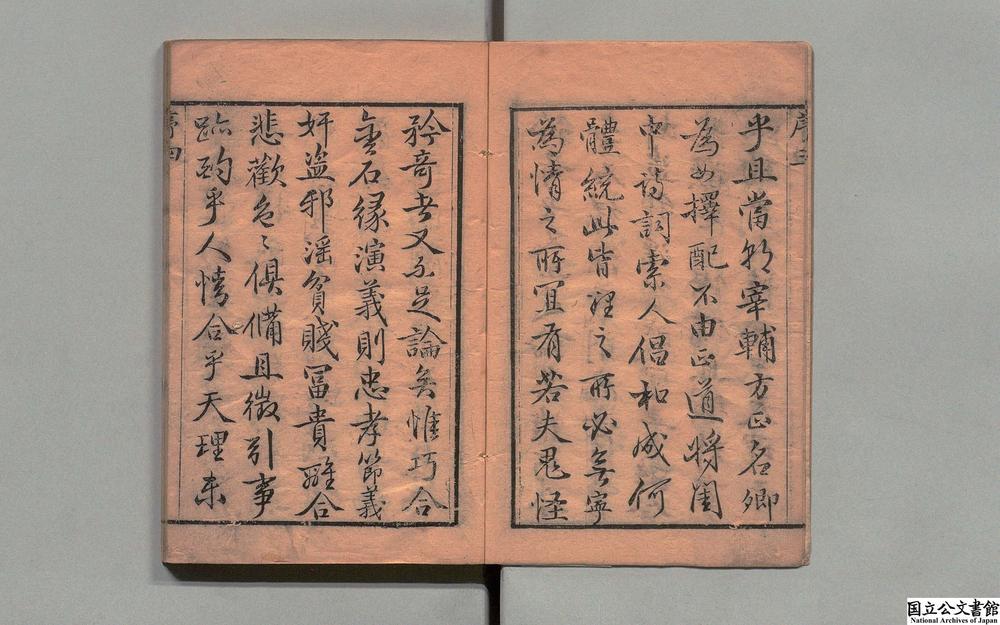 序三
乎且當朝宰輔方正名卿
為女擇配不由正道將閨
中詩詞索人倡和成何
體統此皆理之所必無寧
為情之所宜有若夫鬼怪
矜奇者又不足論矣惟巧合
金石緣演義則忠孝節義
奸盜邪淫貧賤冨貴離合
悲歡色〻俱備且徵引事
跡酌乎人情合乎天理未
序四
国立公文書館
National Archives of Japan